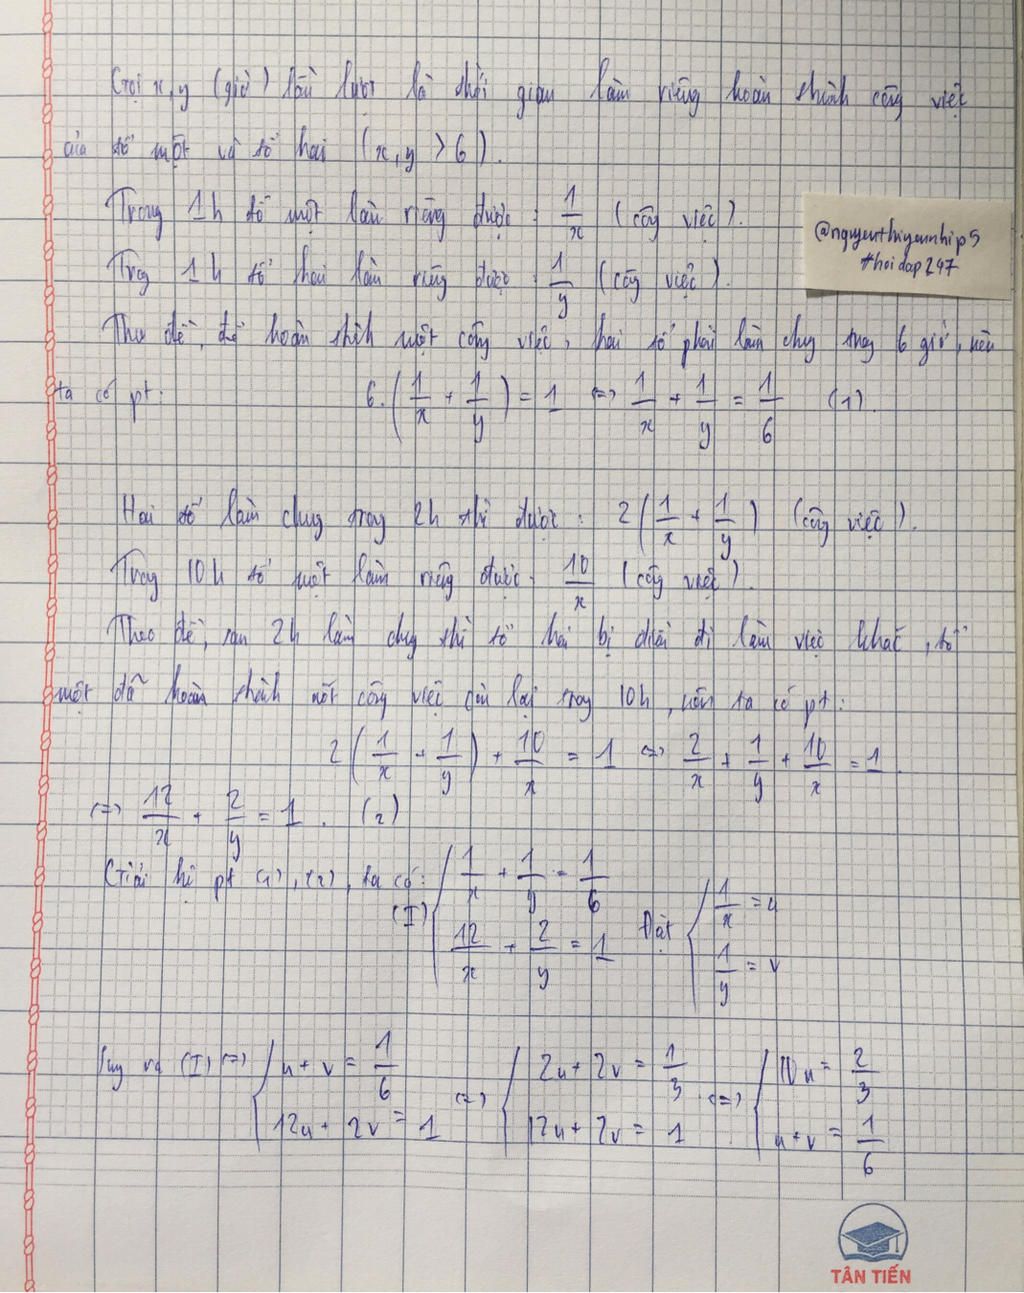 Gọi x, y (giờ) lần lượt là thời gian làm riêng hoàn thành công việc
của tổ một và tổ hai (x, y > 6).
Trong 1h tổ một làm riêng được: 1/x (công việc).
Trog 1h tổ hai làm riêng được: 1/y (công việc).
@nguyenthiyennhip5
#hoidap247
Theo đề, để hoàn thành một công việc, hai tổ phải làm chug trog 6 giờ, nên
ta có pt: 6.(1/x + 1/y) = 1 <=> 1/x + 1/y = 1/6 (1).
Hai tổ làm chug trog 2h thì được: 2(1/x + 1/y) (công việc).
Trog 10h tổ một làm riêng được: 10/x (công việc).
Theo đề, sau 2h làm chug thì tổ hai bị điều đi làm việc khác, tổ
một đã hoàn thành nốt công việc còn lại trog 10h, nên ta có pt:
2(1/x + 1/y) + 10/x = 1 <=> 2/x + 1/y + 10/x = 1.
<=> 12/x + 2/y = 1. (2)
Giải hệ pt (1), (2), ta có: (I) { 1/x + 1/y = 1/6 ; 12/x + 2/y = 1 Đặt { 1/x = u ; 1/y = v
Suy ra (I) <=> { u + v = 1/6 ; 12u + 2v = 1 <=> { 2u + 2v = 1/3 ; 12u + 2v = 1 <=> { 10u = 2/3 ; u + v = 1/6
TÂN TIẾN